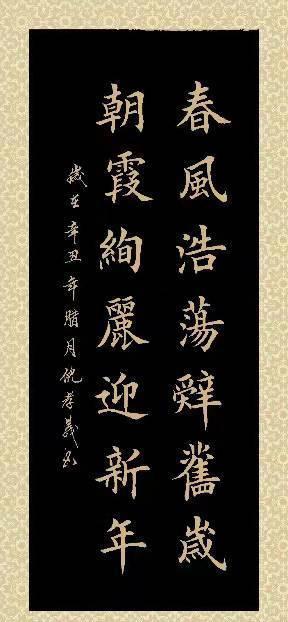 春風浩蕩辭舊歲
朝霞絢麗迎新年
歲在辛丑年腊月倪孝義书